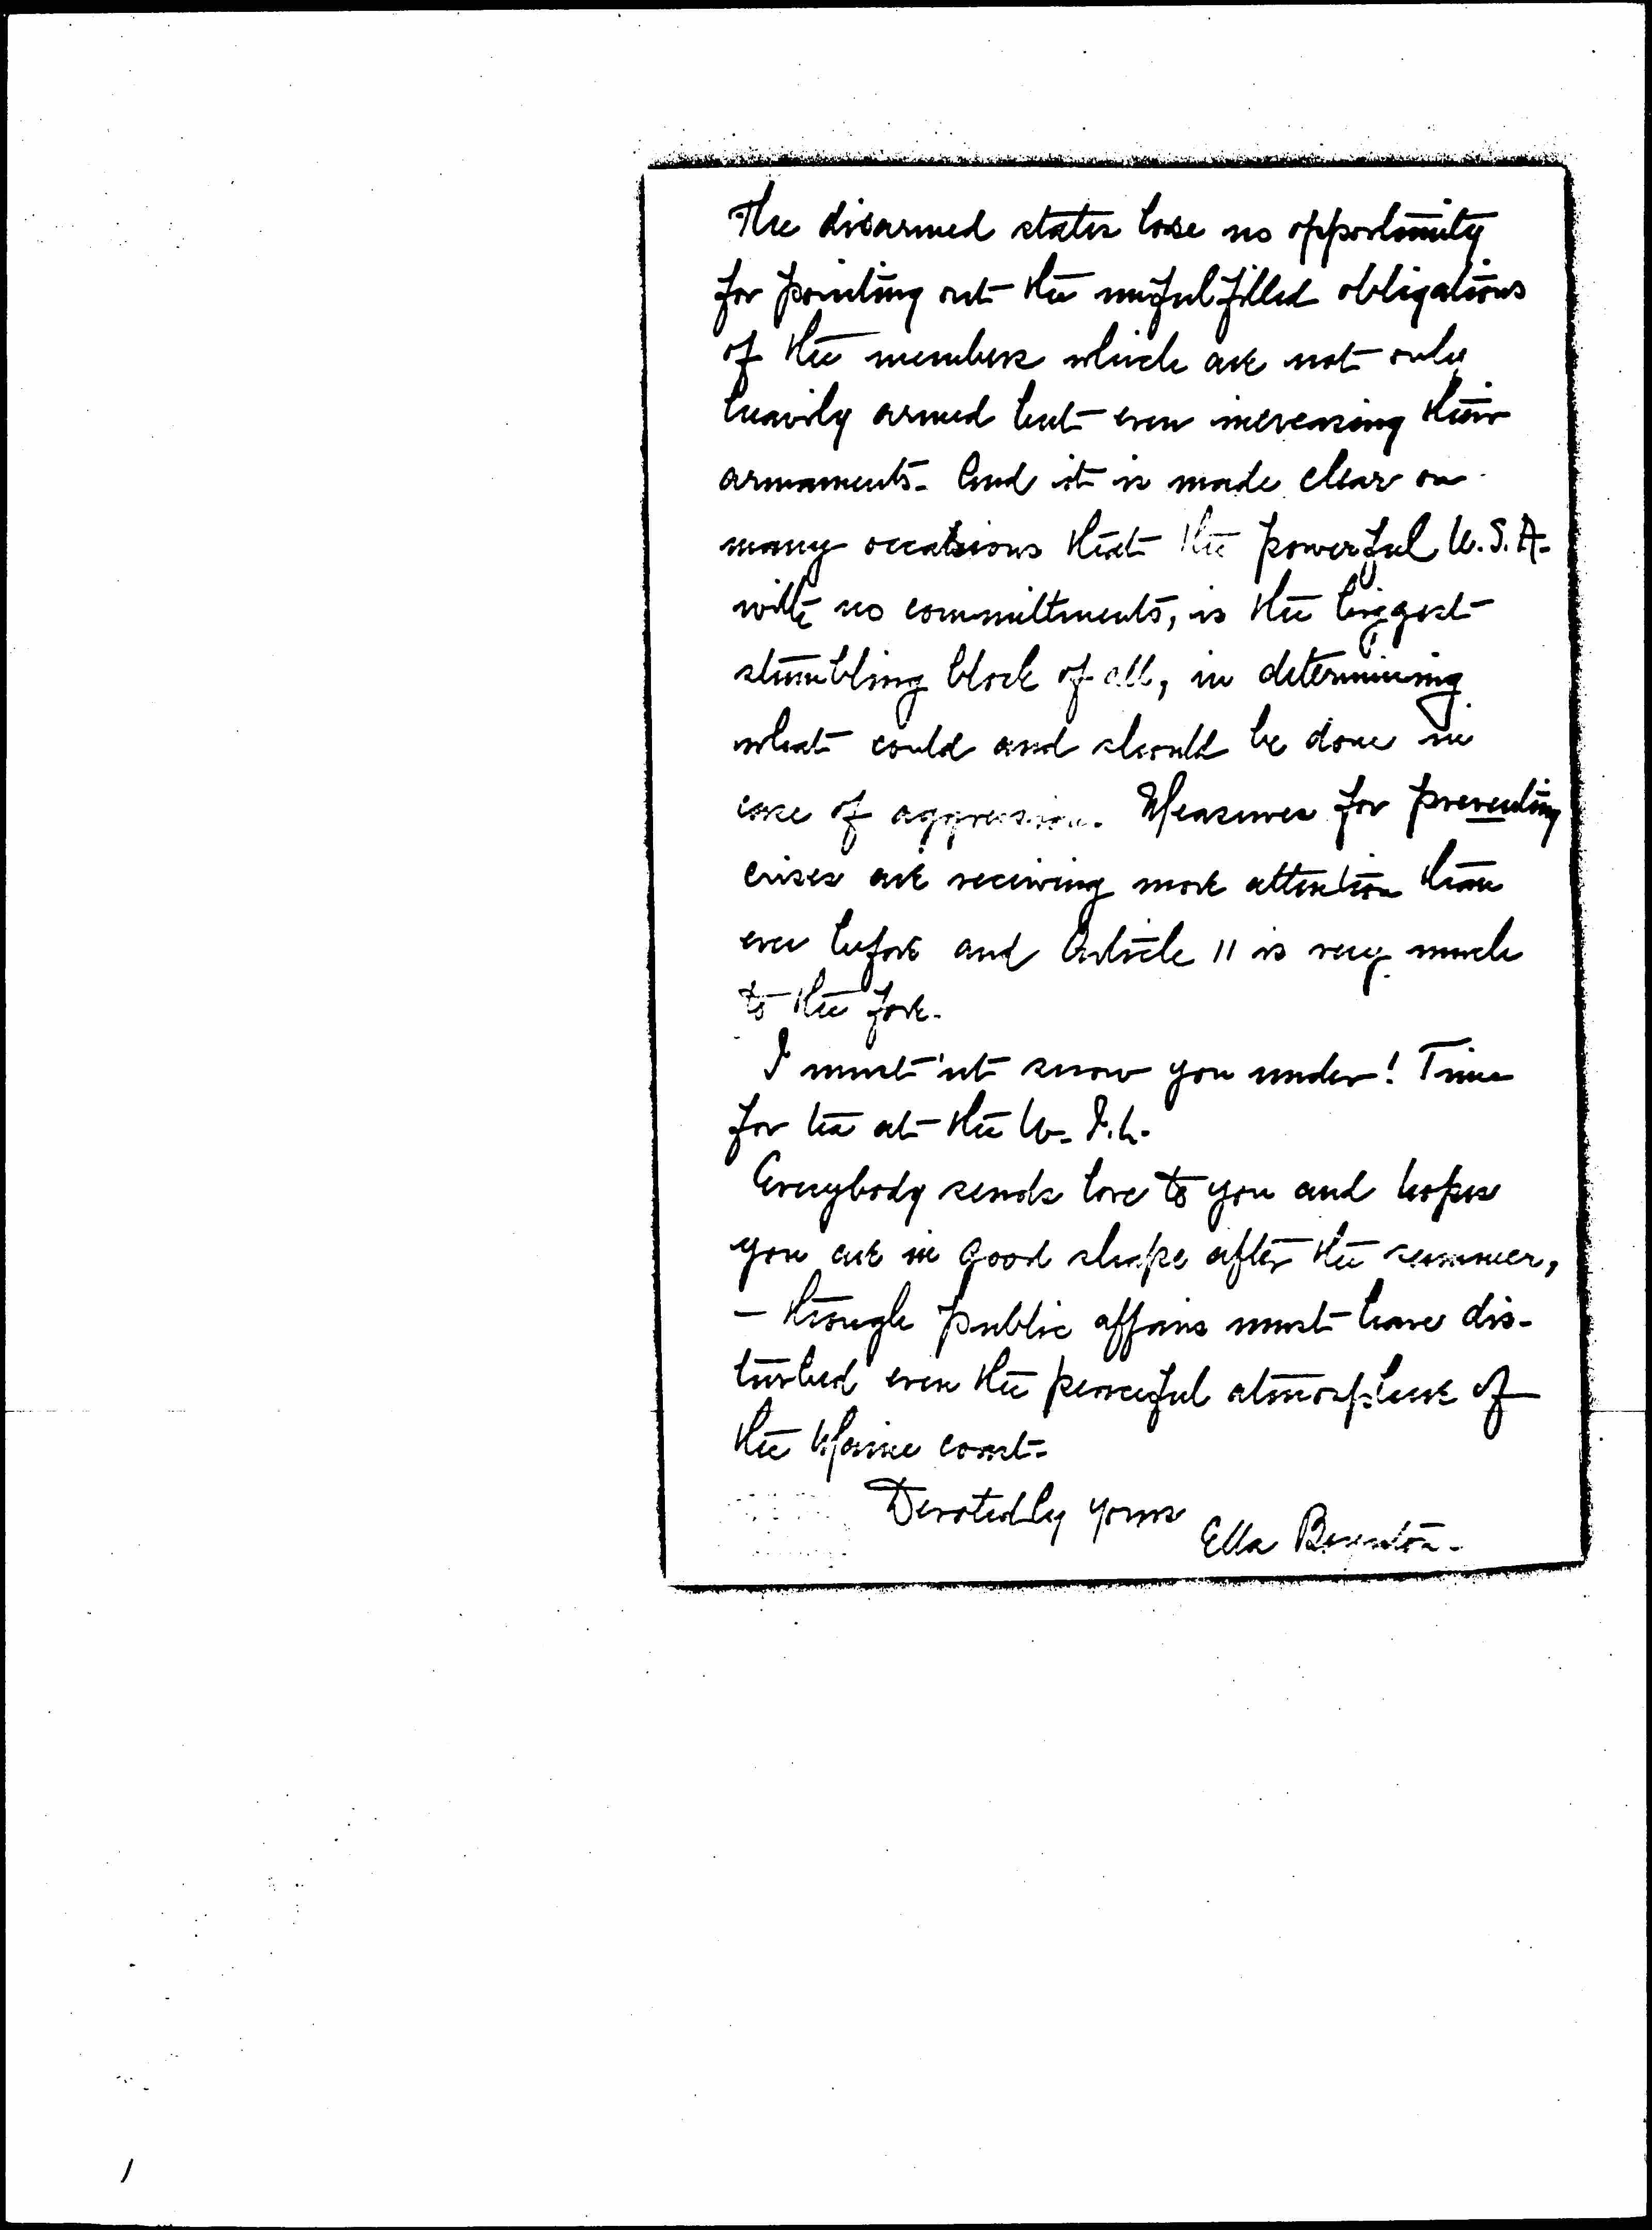 The disarmed states lose no opportunity
for pointing out the unfulfilled obligations
of the members which are not only
heavily armed but even increasing their
armaments. And it is made clear on
many occasions that the powerful U.S.A.
with no committments, is the biggest
stumbling block of all, in determining
what could and should be done in
case of aggression. Measures for preventing
crises are receiving more attention than
ever before and Article 11 is very much
to the fore.
I must'nt snow you under! Time
for tea at the W.I.L.
Everybody sends love to you and hopes
you are in good shape after the summer,
- though public affairs must have dis-
turbed even the peaceful atmosphere of
the Maine coast.
Devotedly yours
Ella Boynton.
/